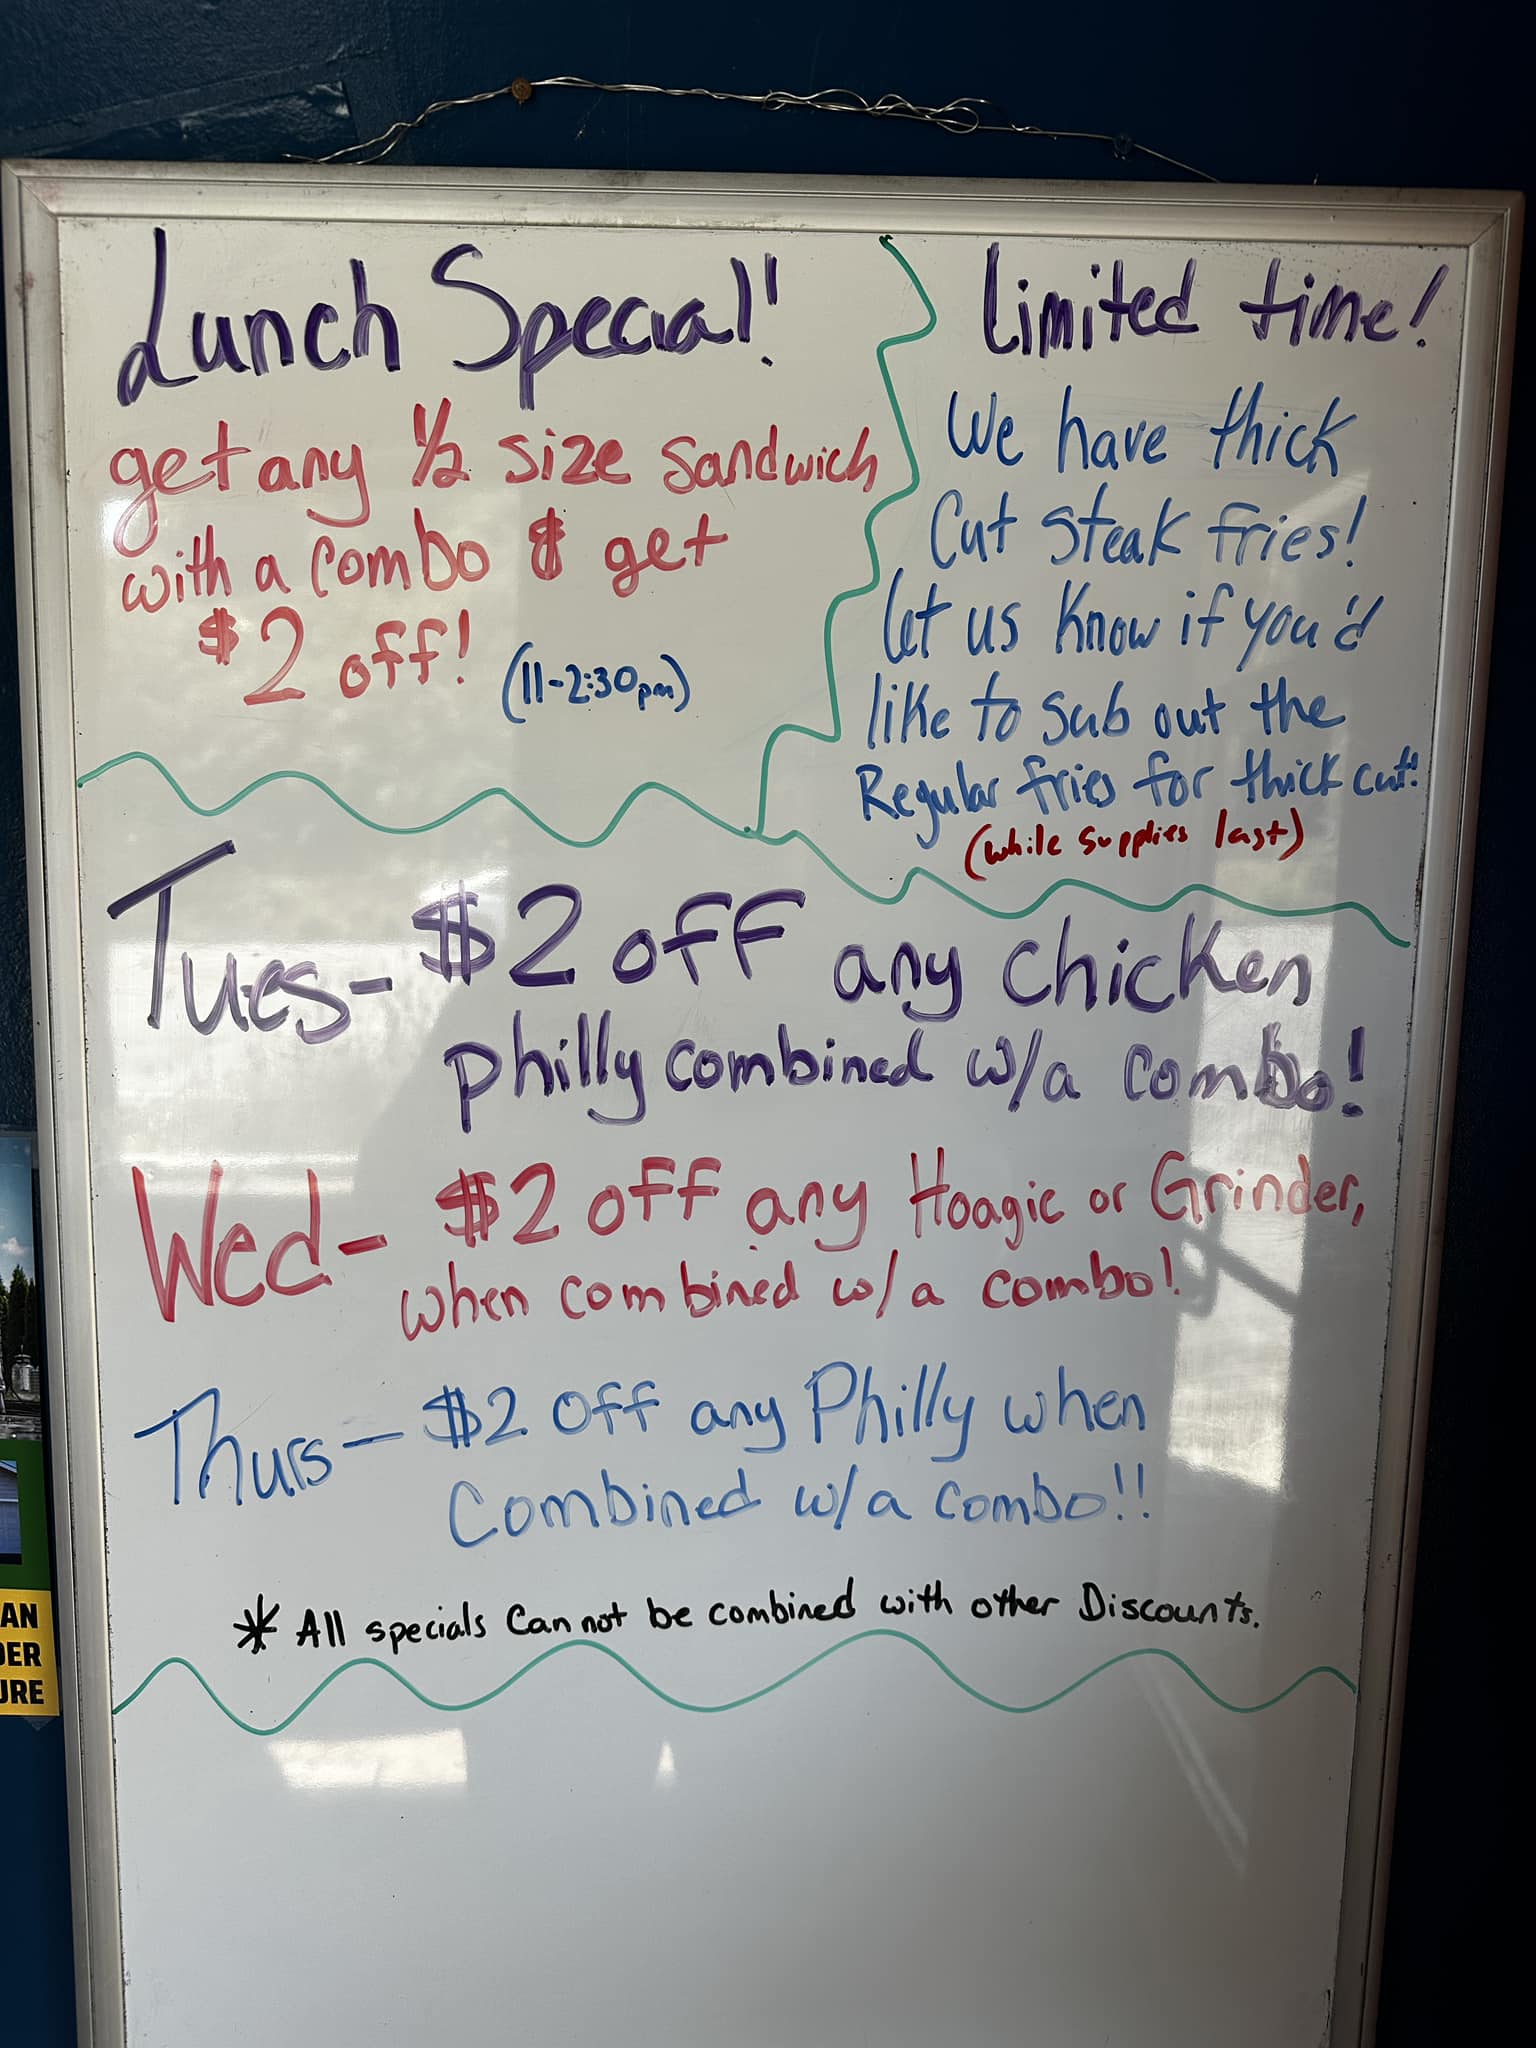 Lunch Special!
get any 1/2 size sandwich
with a combo & get
$2 off!
(11-2:30pm)
Limited time!
We have thick
Cut Steak fries!
let us know if you'd
like to sub out the
Regular fries for thick cut!
(while supplies last)
Tues- $2 off any chicken
philly combined w/a combo!
Wed- $2 off any Hoagie or Grinder,
when combined w/a combo!
Thurs- $2 off any Philly when
Combined w/a combo!!
* All specials Cannot be combined with other Discounts.
AN
DER
URE